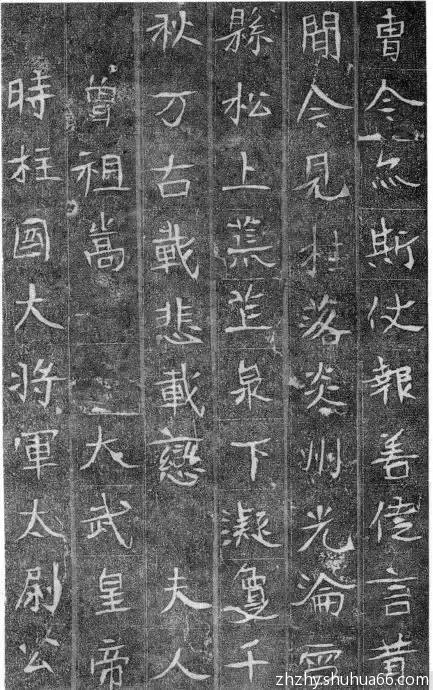 曹今尒斯仗報善言昔
聞今見桂落炎州光淪雲
縣松上荒泉下凝敻千
秋万古載悲載戀 夫人
曾祖嵩 大武皇帝
時柱國大將軍太尉公
zhzhyshuhua66.com